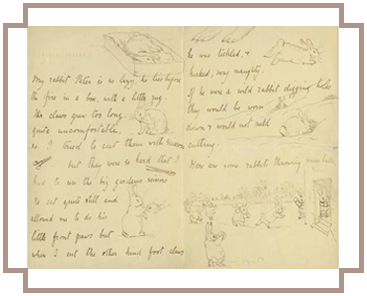 My rabbit Peter is so lazy, he lies before
the fire in a box, with a little rug.
His claws grew too long,
quite uncomfortable,
so I tried to cut them with scissors
but they were so hard that I
had to use the big garden scissors
He sat quite still and
allowed me to do his
little front paws but
when I cut the other hind foot claws
he was tickled, &
kicked, very naughty.
If he were a wild rabbit digging holes
they would be worn
down & would not need
cutting.
Here are some rabbits throwing snow balls